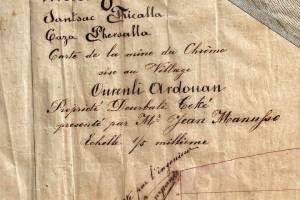 Santsac Tricalla
Caza Phersalla
Carte de la mine du Chrôme
sise au Village
Curenli Ardouan
Propriété Dourbali Teké
présenté par Mr. Jean Manusso
Echelle 1/5 millième
par l'ingénieur